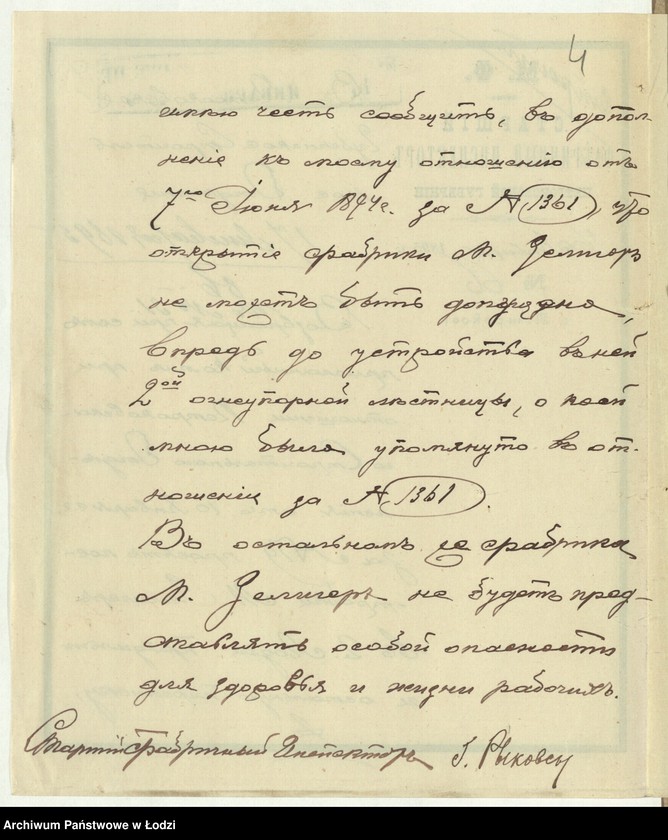 4
имѣю честь сообщить, въ допол-
неніе къ моему отношенію отъ
7го Іюня 1894г. за № 1361, что
открытіе фабрики М. Зелигеръ
не можетъ быть допущено,
впредь до устройства въ ней
2ой огнеупорной лѣстницы, о коей
мною было упомянуто въ от-
ношеніи за № 1361.
Въ остальномъ же фабрика
М. Зелигеръ не будетъ пред-
ставлять особой опасности
для здоровья и жизни рабочихъ.
Старшій Фабричный Инспекторъ Г. Рыковскі
Archiwum Państwowe w Łodzi